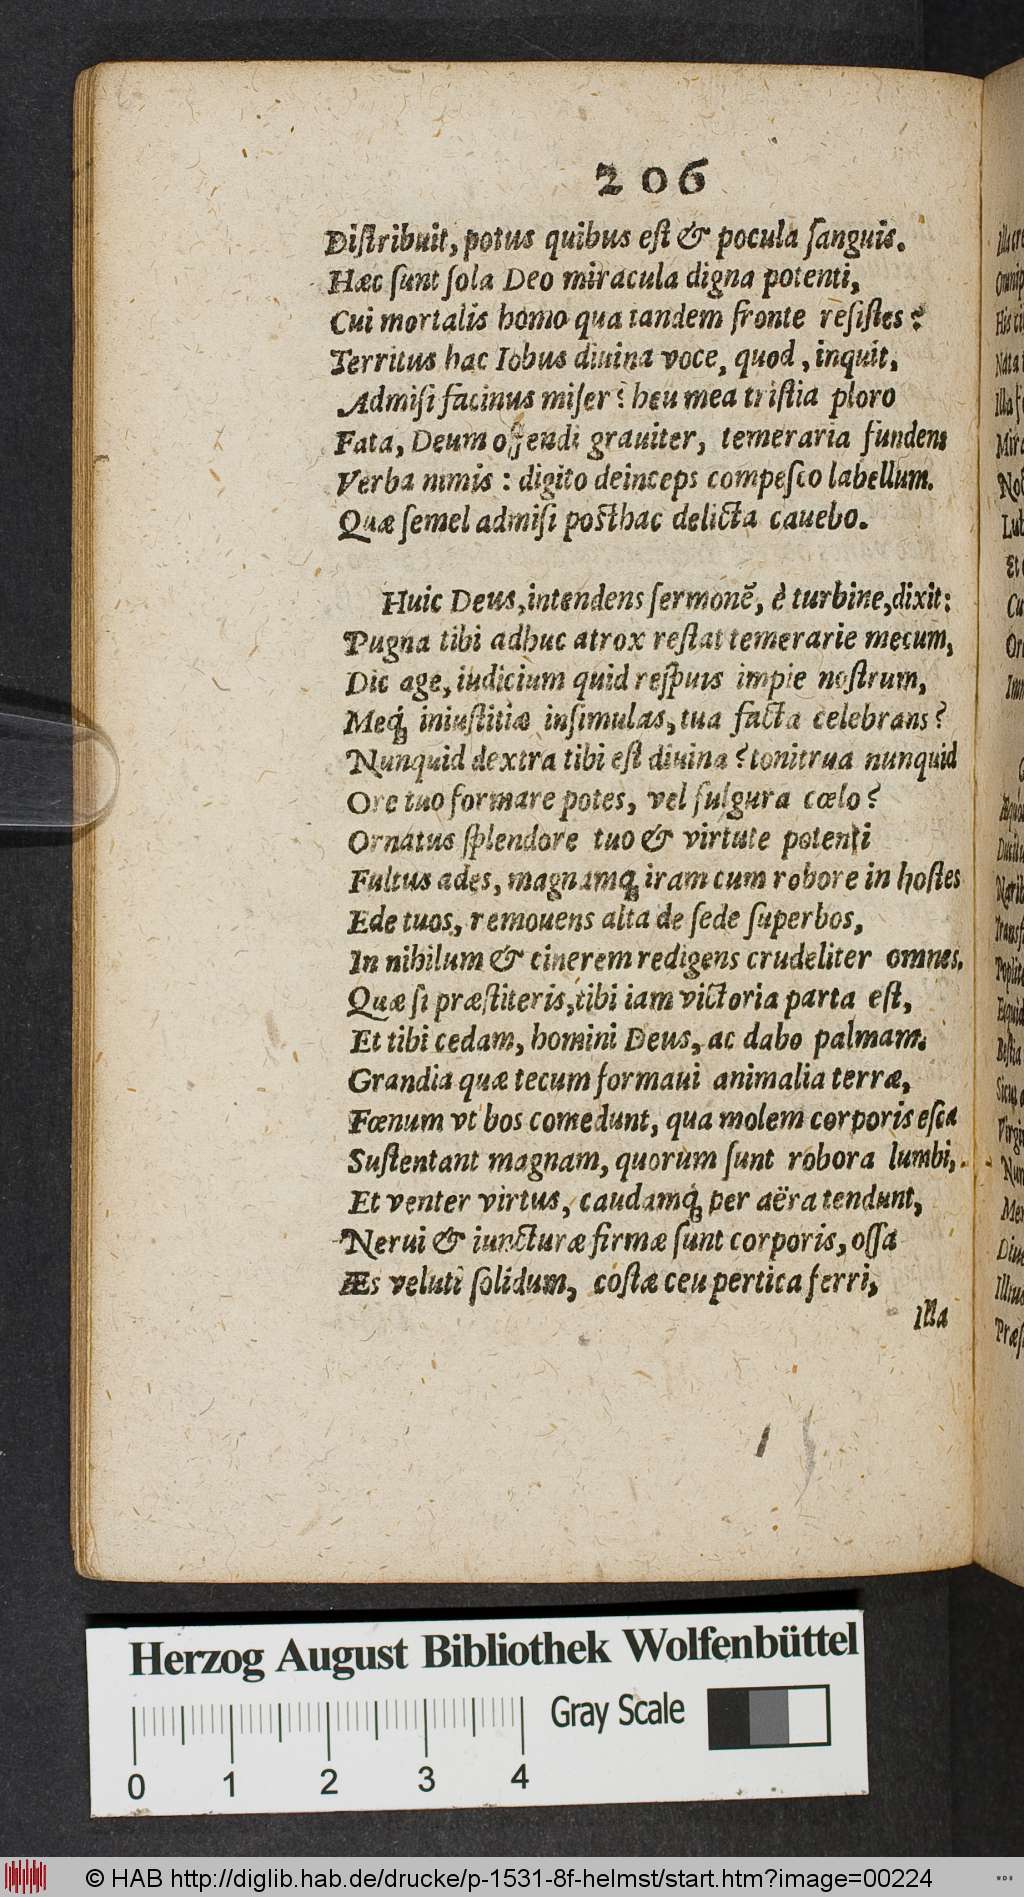 206
Diſtribuit, potus quibus eſt & pocula ſanguis.
Hæc ſunt ſola Deo miracula digna potenti,
Cui mortalis homo qua tandem fronte reſiſtes?
Territus hac Iobus diuina voce, quod, inquit,
Admiſi facinus miſer? heu mea triſtia ploro
Fata, Deum offendi grauiter, temeraria fundens
Verba nimis: digito deinceps compeſco labellum.
Quæ ſemel admiſi poſthac delicta cauebo.
Huic Deus, intendens ſermonẽ, è turbine, dixit:
Pugna tibi adhuc atrox reſtat temerarie mecum,
Dic age, iudicium quid reſpuis impie noſtrum,
Meq́; iniuſtitiæ inſimulas, tua facta celebrans?
Nunquid dextra tibi eſt diuina? tonitrua nunquid
Ore tuo formare potes, vel fulgura cœlo?
Ornatus ſplendore tuo & virtute potenti
Fultus ades, magnamq; iram cum robore in hoſtes
Ede tuos, remouens alta de ſede ſuperbos,
In nihilum & cinerem redigens crudeliter omnes.
Quæ ſi præſtiteris, tibi iam victoria parta eſt,
Et tibi cedam, homini Deus, ac dabo palmam.
Grandia quæ tecum formaui animalia terræ,
Fœnum vt bos comedunt, qua molem corporis eſca
Suſtentant magnam, quorum ſunt robora lumbi,
Et venter virtus, caudamq́; per aëra tendunt,
Nerui & iuncturæ firmæ ſunt corporis, oſſa
Æs veluti ſolidum, coſtæ ceu pertica ferri,
Illa
Herzog August Bibliothek Wolfenbüttel
Gray Scale
0 1 2 3 4
© HAB http://diglib.hab.de/drucke/p-1531-8f-helmst/start.htm?image=00224